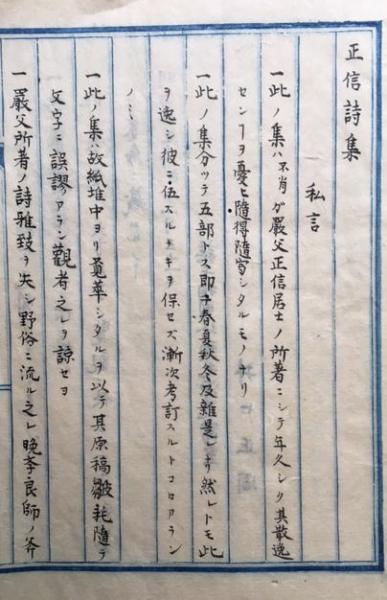 正信詩集
私言
一此ノ集ハ不肖ガ嚴父正信居士ノ所著ニシテ年久シク其散逸
センヿヲ憂ヒ隨得隨寫シタルモノナリ
一此ノ集分ツテ五部トス即チ春夏秋冬及雜是レナリ然レトモ此
ヲ逸シ彼ニ伍スルナキヲ保セズ漸次考訂スルトコロアラン
ノミ
一此ノ集ハ故紙堆中ヨリ覔萃シタルヲ以テ其原稿皺耗隨テ
文字ニ誤謬アラン觀者之レヲ諒セヨ
一嚴父所著ノ詩雅致ヲ失シ野俗ニ流ル之レ晩李良師ノ斧